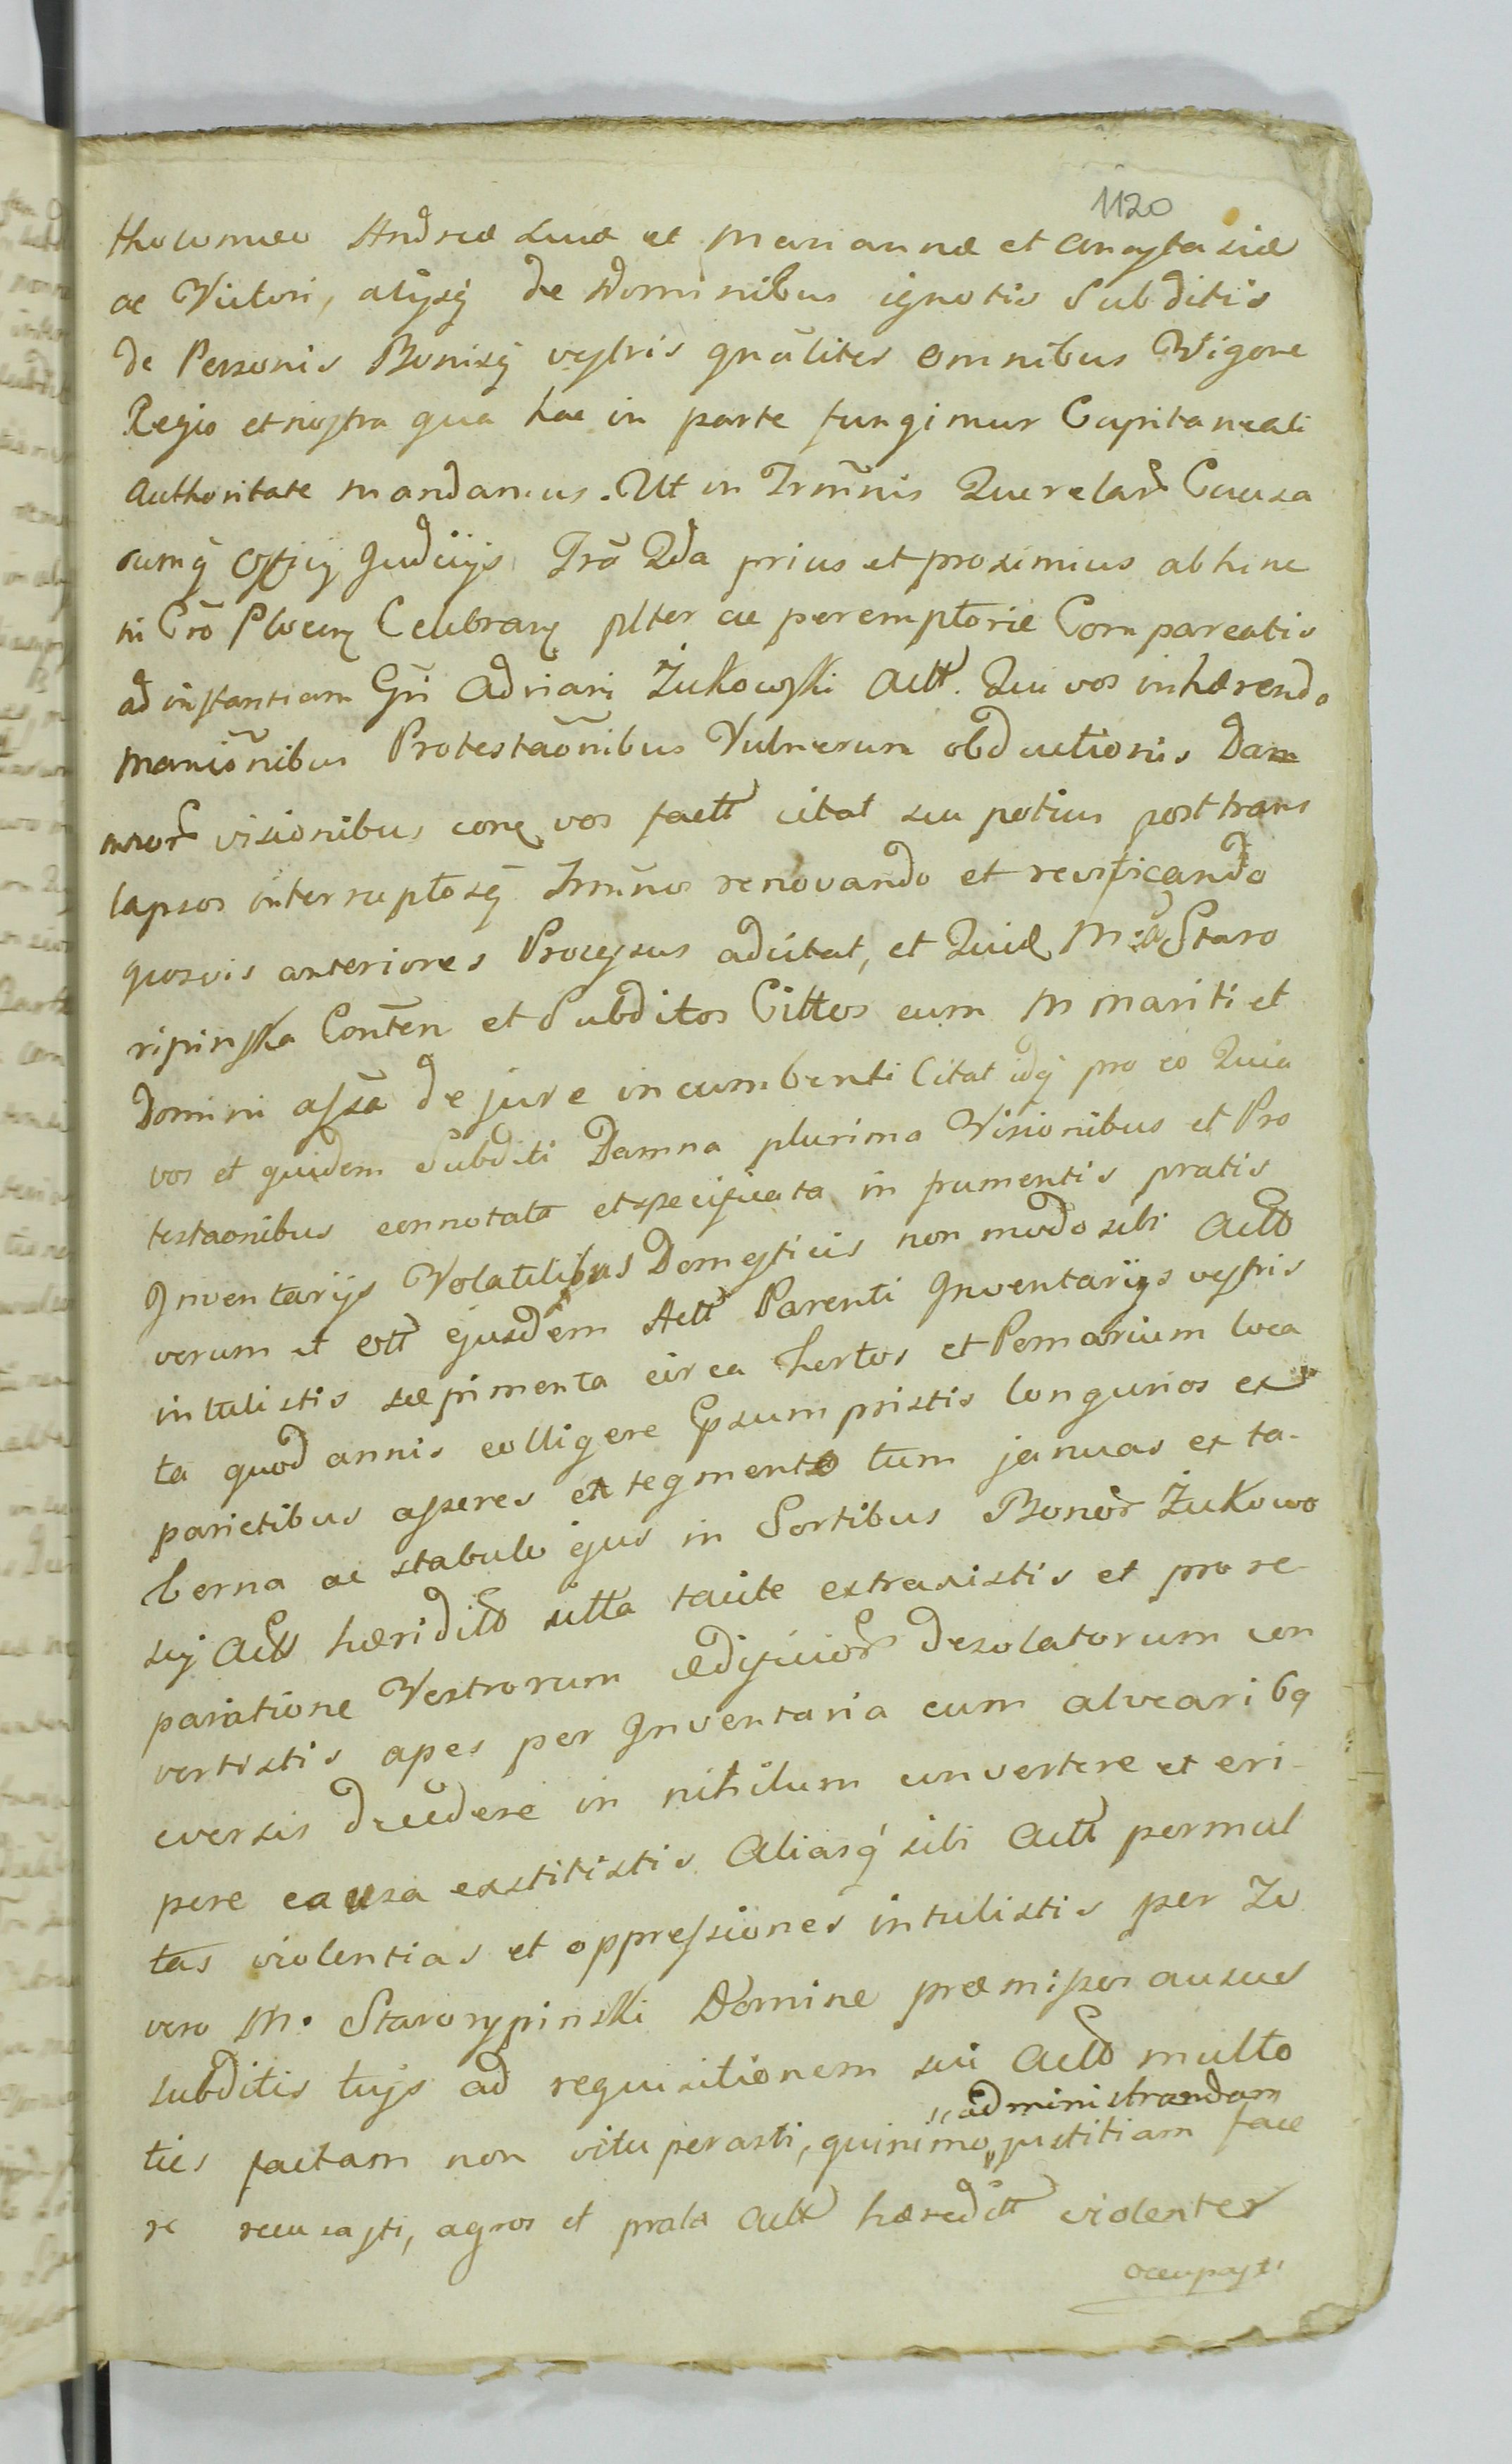 1120
tholomæo Andreæ Lucæ et Mariannæ et Anastasiæ
ac Victori, alijsq de Nominibus ignotis Subditis
de Personis Bonisq vestris gnãliter omnibus Vigore
Regio et nostra qua hac in parte fungimur Capitaneali
Authoritate mandamus. Ut in Trm̃nis Querelarũ Causa
rumq Officij Judicijs Trã Qda prius et proximius abhinc
in Crõ Plocen Celebran plter ac peremptorie Compareatis
ad instantiam Gñi Adriani Żukowski Actt. Qui vos inhærendo
Manionibus Protestaõnibus Vulnerum obductionis Dam
nnor visionibus con vos factt citat seu potius post trans
lapsos interruptosq Trmnos renovando et revificando
quosvis anteriores Processus adcitat, et Quid M: Staro
ripinska Conten et Subditos Cittos cum M mariti et
Domini assã de jure incumbenti Citat idq pro eo Quia
vos et quidem Subditi Damna plurima Visionibus et Pro
testaonibus connotata et specificata in frumentis pratis
Inventarijs Volatilibus Domesticis non modo sibi Actt
verum et ejusdem Actt Parenti Inventarijs vestris
intulistis sæpimenta circa hortos et Pomarium loca
ta quod annis colligere præsumpsistis longurios ex
parietibus asseres et tegmento tum januas ex ta-
berna ac stabulo ejus in Sortibus Bonor Żukowo
sij Actt hæridito sitta tacite extraxistis et pro re-
paratione Vestrorum ædificior desolatorum con
vertistis apes per Inventaria cum alvearibq
eversis decedere in nihilum convertere et eri-
pere causa exstitistis Aliasq sibi Actt permul
tas violentias et oppressiones intulistis per Tu
vero M. Starorypinski Domine præmissos ausus
subditis tujs ad requisitionem sui Actt multo
ties factam non vituperasti, quinimo " administrandam justitiam face
re recusasti, agros et prata Actt hæreditt violenter
occupasti